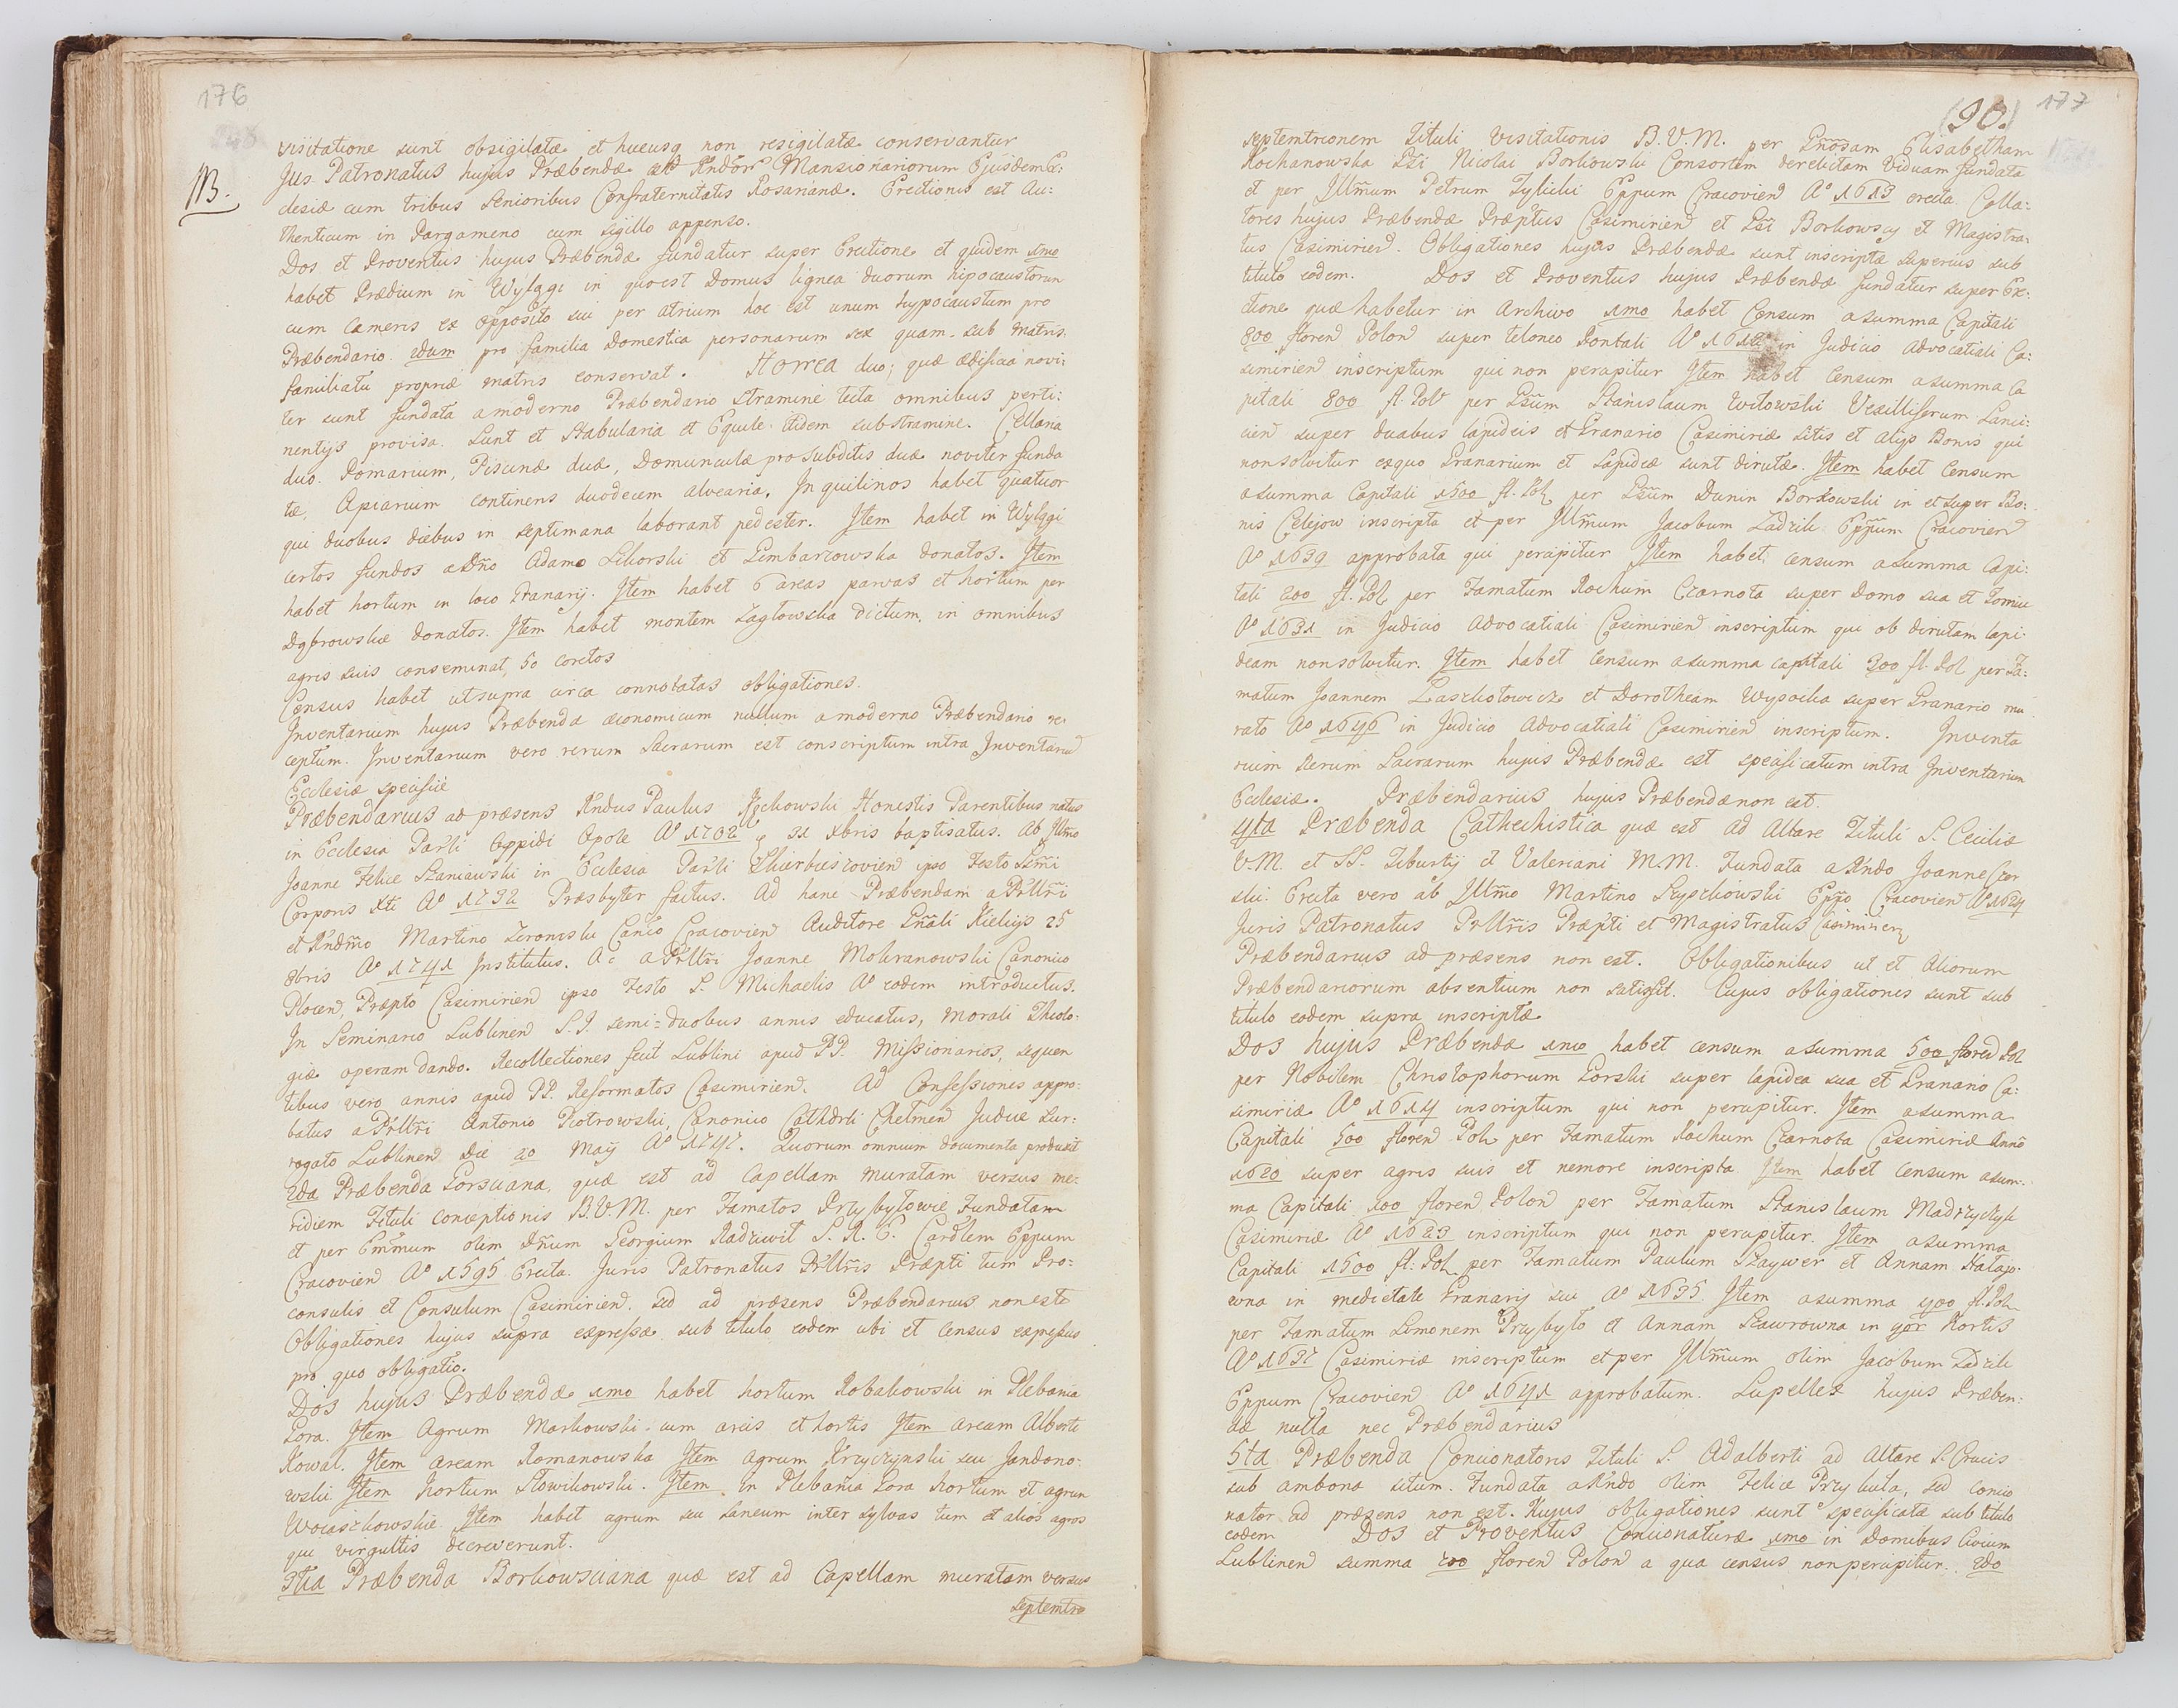 176
visitatione sunt obsigilatæ et hucusq non resigilatæ conservantur
NB.
Jus Patronatus hujus Præbendæ est Rndor Mansionariorum Ejusdem Ec:
clesiæ cum tribus Senioribus Confraternitatis Rosarianæ. Erectionis est Au:
thenticum in Pargameno cum sigillo appenso.
Dos et Proventus hujus Præbendæ fundatur super Erectione et quidem 1mo
habet Prædium in Wylągi in quo est Domus lignea duorum hipocaustorum
cum cameris ex opposito sui per atrium hoc est unum hypocaustum pro
Præbendario 2dum pro familia Domestica personarum sex quam sub matris:
familiatu propriæ matris conservat. Horrea duo; quæ ædificia novi:
ter sunt fundata a moderno Præbendario stramine tecta omnibus perti:
nentijs provisa. Sunt et Stabularia et Equile itidem sub stramine. Cellaria
duo. Pomarium, Piscinæ duæ, Domunculæ pro Subditis duæ noviter funda
tæ, Apiarium continens duodecem alvearia. Inquilinos habet quatuor
qui duobus diebus in septimana laborant pedester. Item habet in Wylągi
certos fundos a Dño Adamo Sikorski et Gembarzowska donatos. Item
habet hortum in loco Granarij. Item habet 6 areas parvas et hortum per
Dąbrowskie donatos. Item habet montem Zagłowska dictum, in omnibus
agris suis conseminat 50 coretos
Census habet ut supra circa connotatas obligationes.
Inventarium hujus Præbendæ œconomicum nullum a moderno Præbendario re:
ceptum. Inventarium vero rerum Sacrarum est conscriptum intra Inventariu
Ecclesiæ specifice
Præbendarius ad præsens Rndus Paulus Honestis Parentibus natus
in Ecclesia Parli Oppidi Opole Aº 1702 31 Xbris baptisatus. Ab Illmo
Joanne Felice Szaniawski in Ecclesia Parli Skierbieszovien ipso Festo Ssmi
Corporis Xti Aº 1732 Præsbyter factus. Ad hanc Præbendam a Prllri
et Rndmo Martino Zeronski Canco Cracovien Auditore Gnãli Kielcijs 25
8bris Aº 1741 Institutus. Ac a Prllri Joanne Mokranowski Canonico
Plocen, Præpto Casimirien ipso Festo S. Michaelis Aº eodem introductus.
In Seminario Lublinen S.J. semi=duobus annis educatus, morali Theolo:
giæ operam dando. Recollectiones fecit Lublini apud PP. Missionarios, sequen
tibus vero annis apud PP. Reformatos Casimirien. Ad Confessiones appro:
batus a Prllri Antonio Piotrowski, Canonico Cathdrli Chelmen Judice Sur:
rogato Lublinen Die 20 Maij Aº 1747. Quorum omnium documenta produxit
2da Præbenda Gorsciana, quæ est ad Capellam muratam versus me:
ridiem Tituli Conceptionis B.V.M. per Famatos Przybyłowie Fundatam
et per Emmum olim Dñum Georgium Radziwił S. R. E. Cardlem Eppum
Cracovien Aº 1595 Erecta. Juris Patronatus Prllris Præpti tum Pro=
consulis et Consulum Casimirien. sed ad præsens Præbendarius non est
Obligationes hujus supra expressæ sub titulo eodem ubi et Census expressus
pro quo obligatio.
Dos hujus Præbendæ 1mo habet hortum Robakowski in Plebania
Gora. Item Agrum Markowski cum areis et hortis Item aream Alberti
Kowal. Item aream Romanowska Item agrum Krzyczynski seu Jandono:
wski Item hortum Słowikowski. Item in Plebania Gora hortum et agrum
Wocaszkowskie. Item habet agrum seu laneum inter sylvas tum et alios agros
qui virgultis decreverunt.
3tia Præbenda Borkowsciana quæ est ad Capellam muratam versus
septemtrio
(90.)
177
septemtrionem Tituli Visitationis B.V.M. per Gnosam Elisabetham
Kochanowska Gsi Nicolai Borkowski Consortem derelictam Viduam fundata
et per Illmum Petrum Tylicki Eppum Cracovien Aº 1613 erecta. Colla:
tores hujus Præbendæ Præptus Casimirien et Gsi Borkowscy et Magistra:
tus Casimirien. Obligationes hujus Præbendæ sunt inscriptæ superius sub
titulo eodem. Dos et Proventus hujus Præbendæ fundatur super Ere:
ctione quæ habetur in Archivo 1mo habet Censum a summa Capitali
800 floren Polon super teloneo Pontali Aº in Judicio Advocatiali Ca:
simirien inscriptum qui non percipitur Item habet Censum a summa Ca
pitali 800 fl. Pol per Gsum Stanislaum Witowski Vexilliferum Lanci:
cien super duabus lapideis et Granario Casimiriæ sitis et alijs Bonis qui
non solvitur ex quo Granarium et lapideæ sunt dirutæ. Item habet Censum
a summa Capitali 1500 fl. Pol per Gsum Dunin Borkowski in et super Bo:
nis Celejow inscripta et per Illmum Jacobum Zadzik Eppum Cracovien
Aº 1639 approbata qui percipitur Item habet censum a summa Capi:
tali 200 fl. Pol per Famatum Rochum Czarnota super Domo sua et
Aº 1631 in Judicio Advocatiali Casimirien inscriptum qui ob dirutam lapi:
deam non solvitur. Item habet Censum a summa capitali 300 fl. Pol per Fa:
matum Joannem Laszkotowicz et Dorotheam Wysocka super Granario mu
rato Aº 1646 in Judicio Advocatiali Casimirien inscriptum. Inventa
rium Rerum Sacrarum hujus Præbendæ est specificatum intra Inventarium
Ecclesiæ. Præbendarius hujus Præbendæ non est.
4ta Præbenda Cathechistica quæ est ad Altare Tituli S. Ceciliæ
V.M. et SS. Tiburtij et Valeriani M.M. Fundata a Rndo Joanne Gor
ski. Erecta vero ab Illmo Martino Szyszkowski Eppo Cracovien Aº 1624
Juris Patronatus Prllris Præpti et Magistratus Casimirien
Præbendarius ad præsens non est. Obligationibus ut et aliorum
Præbendariorum absentium non satisfit. Cujus obligationes sunt sub
titulo eodem supra inscriptæ
Dos hujus Præbendæ 1mo habet censum a summa 500 floren Pol
per Nobilem Christophorum Gorski super lapidea sua et Granario Ca:
simiriæ Aº 1614 inscriptum qui non percipitur. Item a summa
Capitali 500 floren Pol per Famatum Rochum Czarnota Casimiriæ Anno
1620 super agris suis et nemore inscripta Item habet censum a sum:
ma Capitali 100 floren Polon per Famatum Stanislaum Madrzyckyh
Casimiriæ Aº 1623 inscriptum qui non percipitur. Item a summa
Capitali 1500 fl: Pol per Famatum Paulum Szaywer et Annam
wna in medietate Granarij sui Aº 1635 Item a summa 400 fl. Pol
per Famatum Simonem Przybyło et Annam Stawrowna in 4or Hortis
Aº 1637 Casimiriæ inscriptum et per Illmum olim Jacobum Zadzik
Eppum Cracovien Aº 1641 approbatum. Supellex hujus Præben:
dæ nulla nec Præbendarius
5ta Præbenda Concionatoris Tituli S. Adalberti ad Altare S. Crucis
sub ambona situm. Fundata a Rndo olim Felice Przybuta, sed concio
nator ad præsens non est. Hujus obligationes sunt specificatæ sub titulo
eodem Dos et Proventus Concionaturæ 1mo in Domibus Civium
Lublinen summa floren Polon a qua census non percipitur. 2do